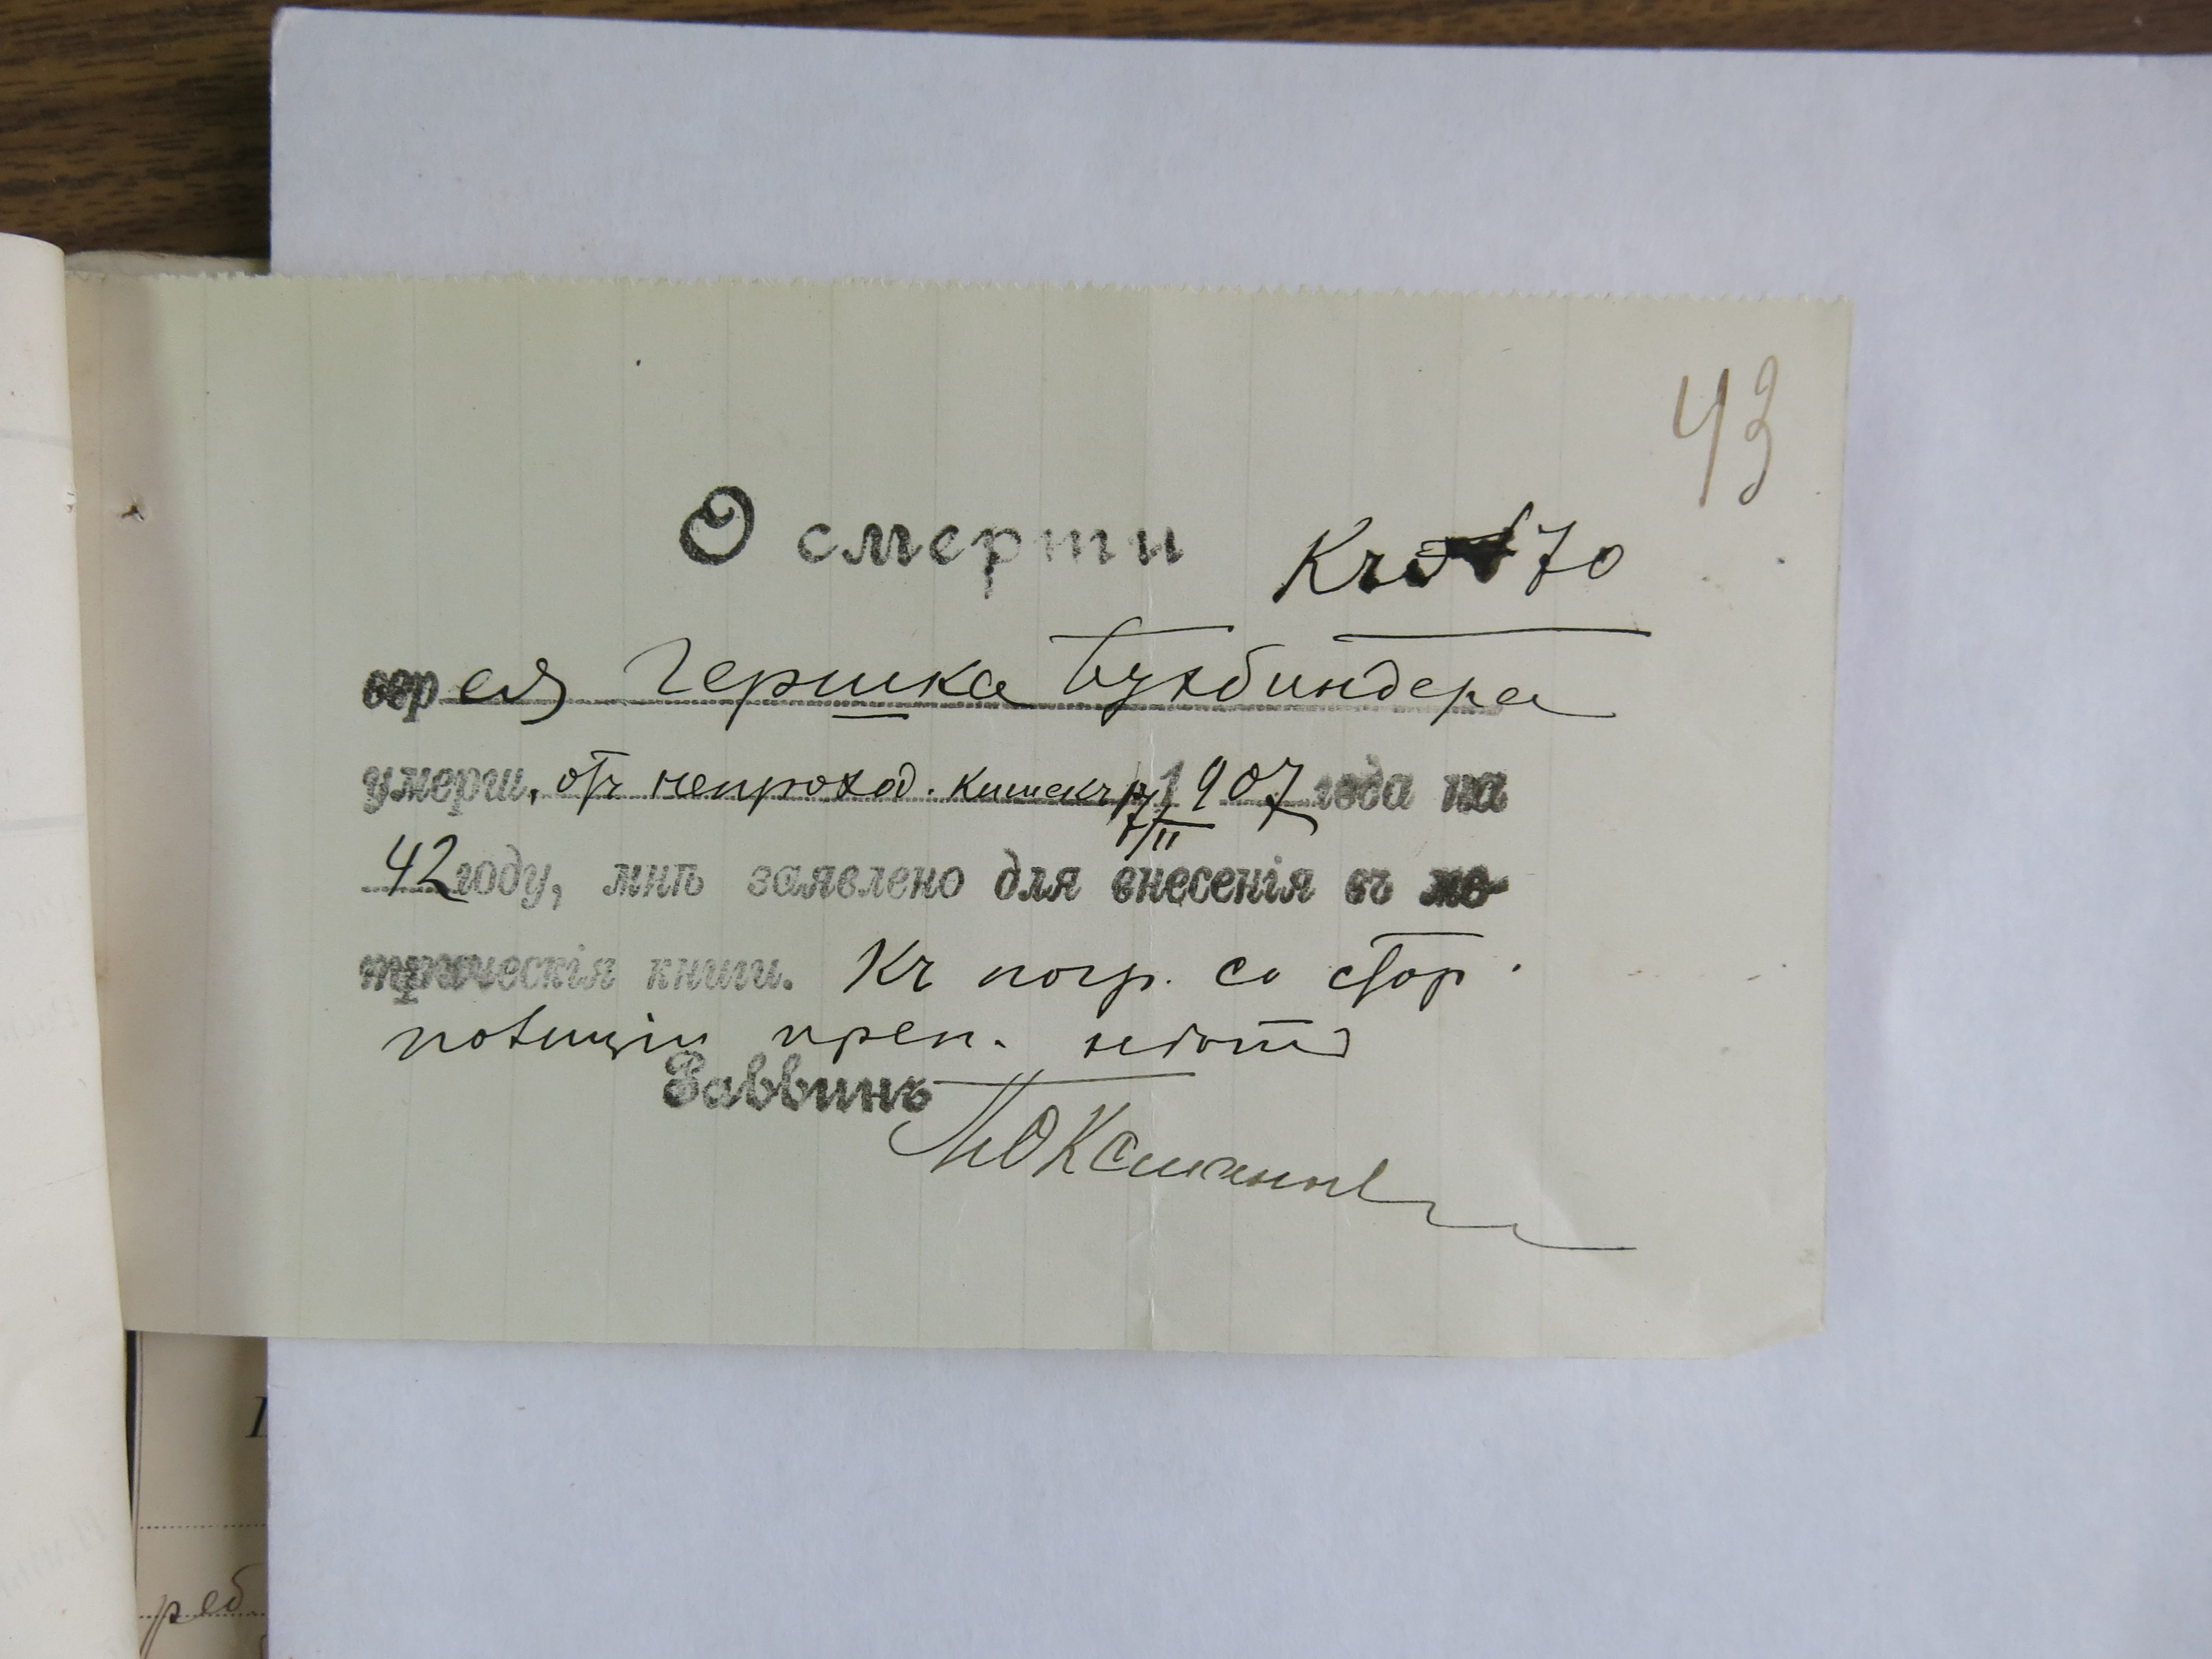 43
О смерти Къ 70
еврея Гершка Бухбиндера
умерш. отъ непроход. кишекъ 17/II 1907 года на
42 году, мнѣ заявлено для внесенія въ ме-
трическія книги. Къ погр. со стор.
полиціи преп. нѣтъ
Раввинъ
реб